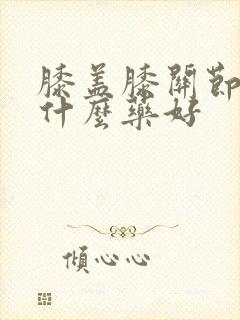 膝盖膝關節
什麼藥好
傾心心